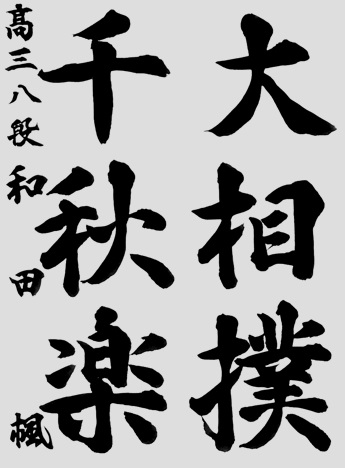 大相撲
千秋楽
高三八段和田楓